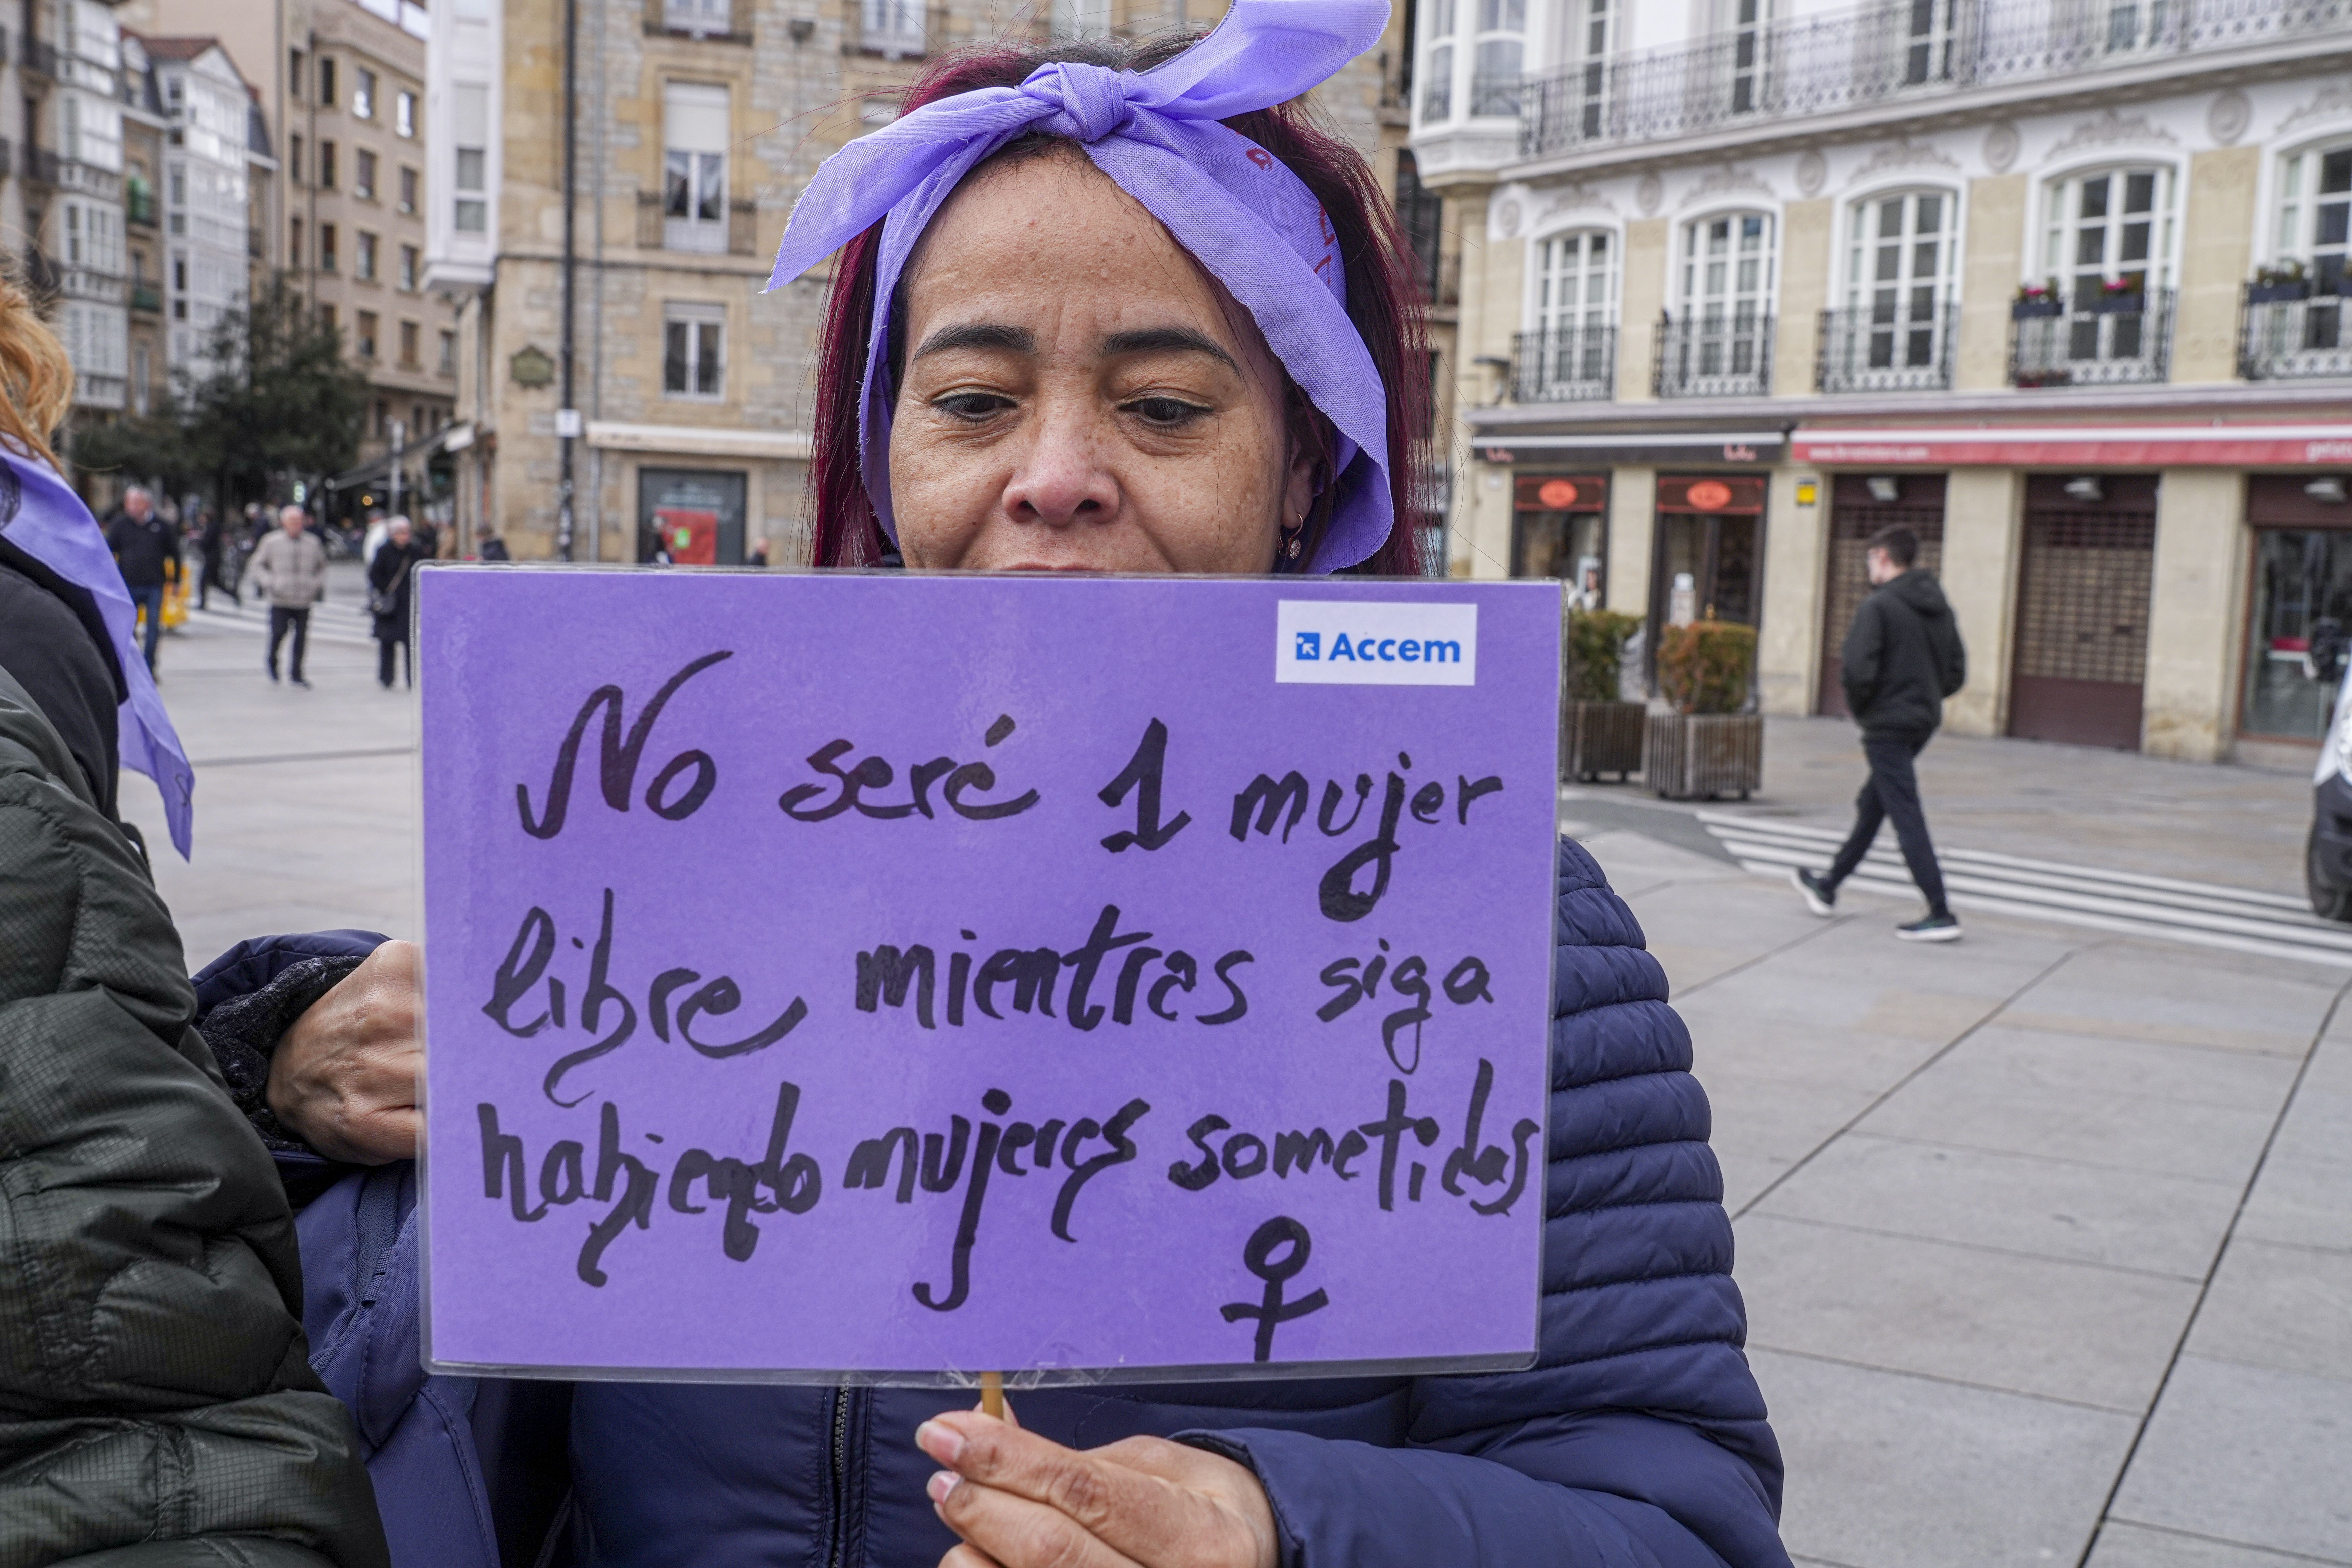 Accem
No seré 1 mujer
libre mientras siga
habiendo mujeres sometidas